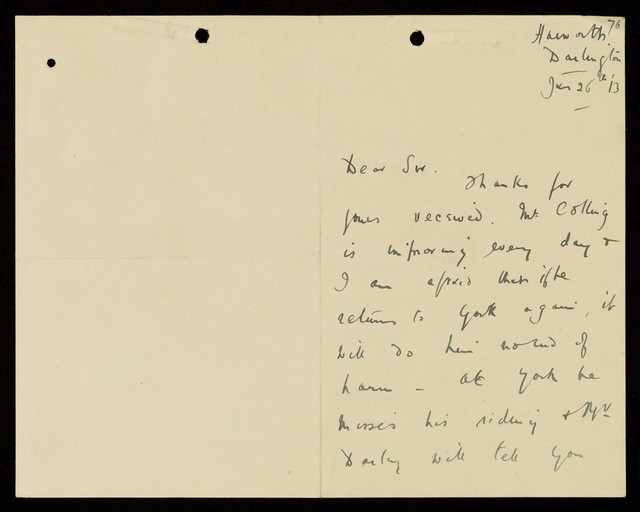 76
Haworth
Darlington
Jan 26th 13
Dear Sir.
Thanks for
yours received. Mr Colling
is improving every day &
I am afraid that if he
returns to York again, it
will do him no end of
harm - At York he
misses his riding & Mr
Darley will tell you